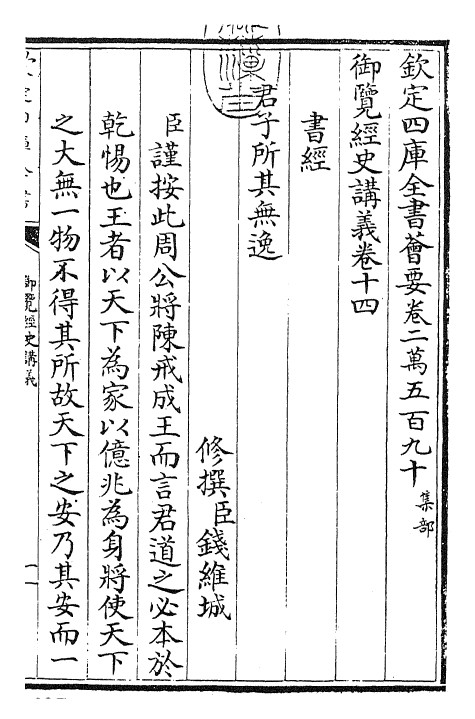 欽定四庫全書薈要卷二萬五百九十 集部
御覽經史講義卷十四
書經
君子所其無逸
修撰臣錢維城
臣謹按此周公將陳戒成王而言君道之必本於
乾惕也王者以天下為家以億兆為身將使天下
之大無一物不得其所故天下之安乃其安而一
御覽經史講義
一